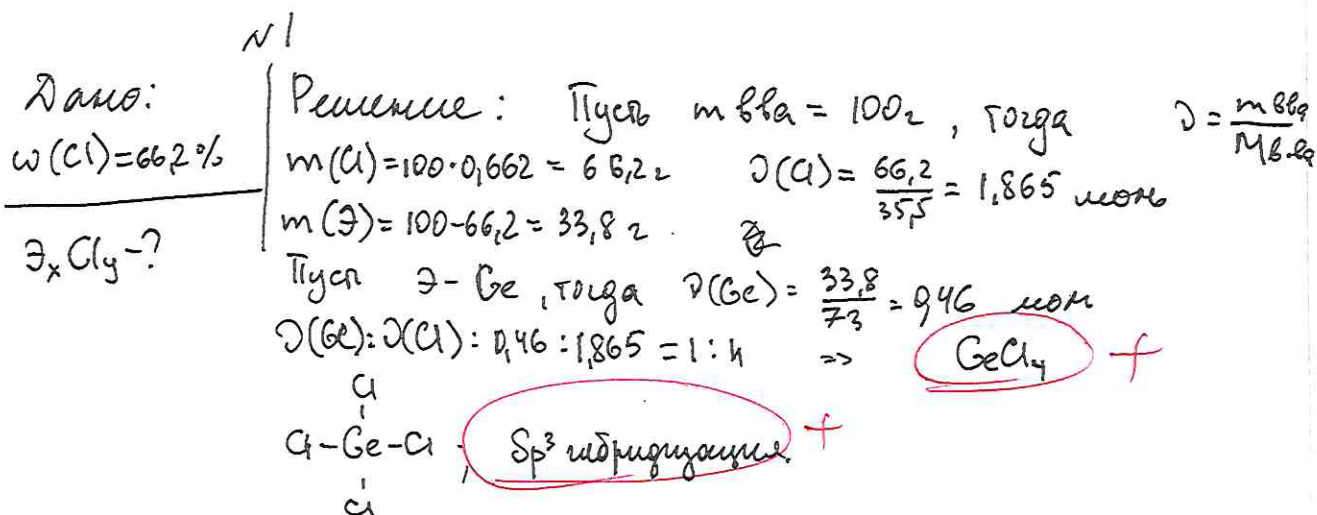 N1
Дано:
ω(Cl)=66,2%
ЭxCly-?
Решение: Пусть m вва = 100г, тогда ν = m вва / M в-ва
m(Cl)=100·0,662 = 66,2 г ν(Cl) = 66,2 / 35,5 = 1,865 моль
m(Э)=100-66,2 = 33,8 г.
Пусть Э-Ge, тогда ν(Ge) = 33,8 / 73 = 0,46 моль
ν(Ge):ν(Cl): 0,46:1,865 = 1:4 => GeCl4 +
Cl
Cl-Ge-Cl, Sp³ гибридизация. +
Cl